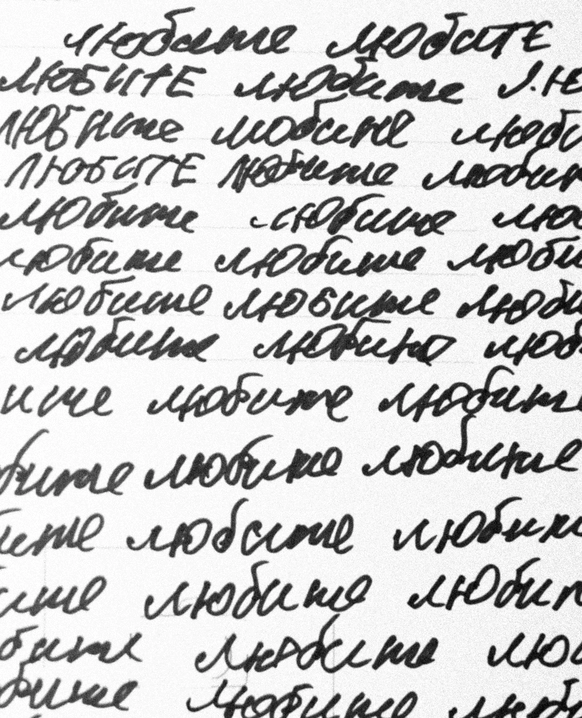 любите любиТЕ
ЛЮБИТЕ любите л.ю
ЛЮБите любите люби
ЛЮБИТЕ любите любит
любите любите лю
любите любите люби
любите любите люби
любите любите люб
ите любите любите
бите любите любите
бите любите любит
ите любите любит
бите любите лю
бите любите люб